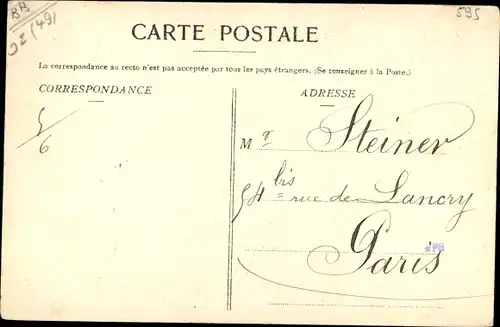 BB
(49)
595
CARTE POSTALE
La correspondance au recto n'est pas acceptée par tous les pays étrangers. (Se renseigner à la Poste.)
CORRESPONDANCE
ADRESSE
5/6
Mr Steiner
54 bis rue de Lancry
Paris